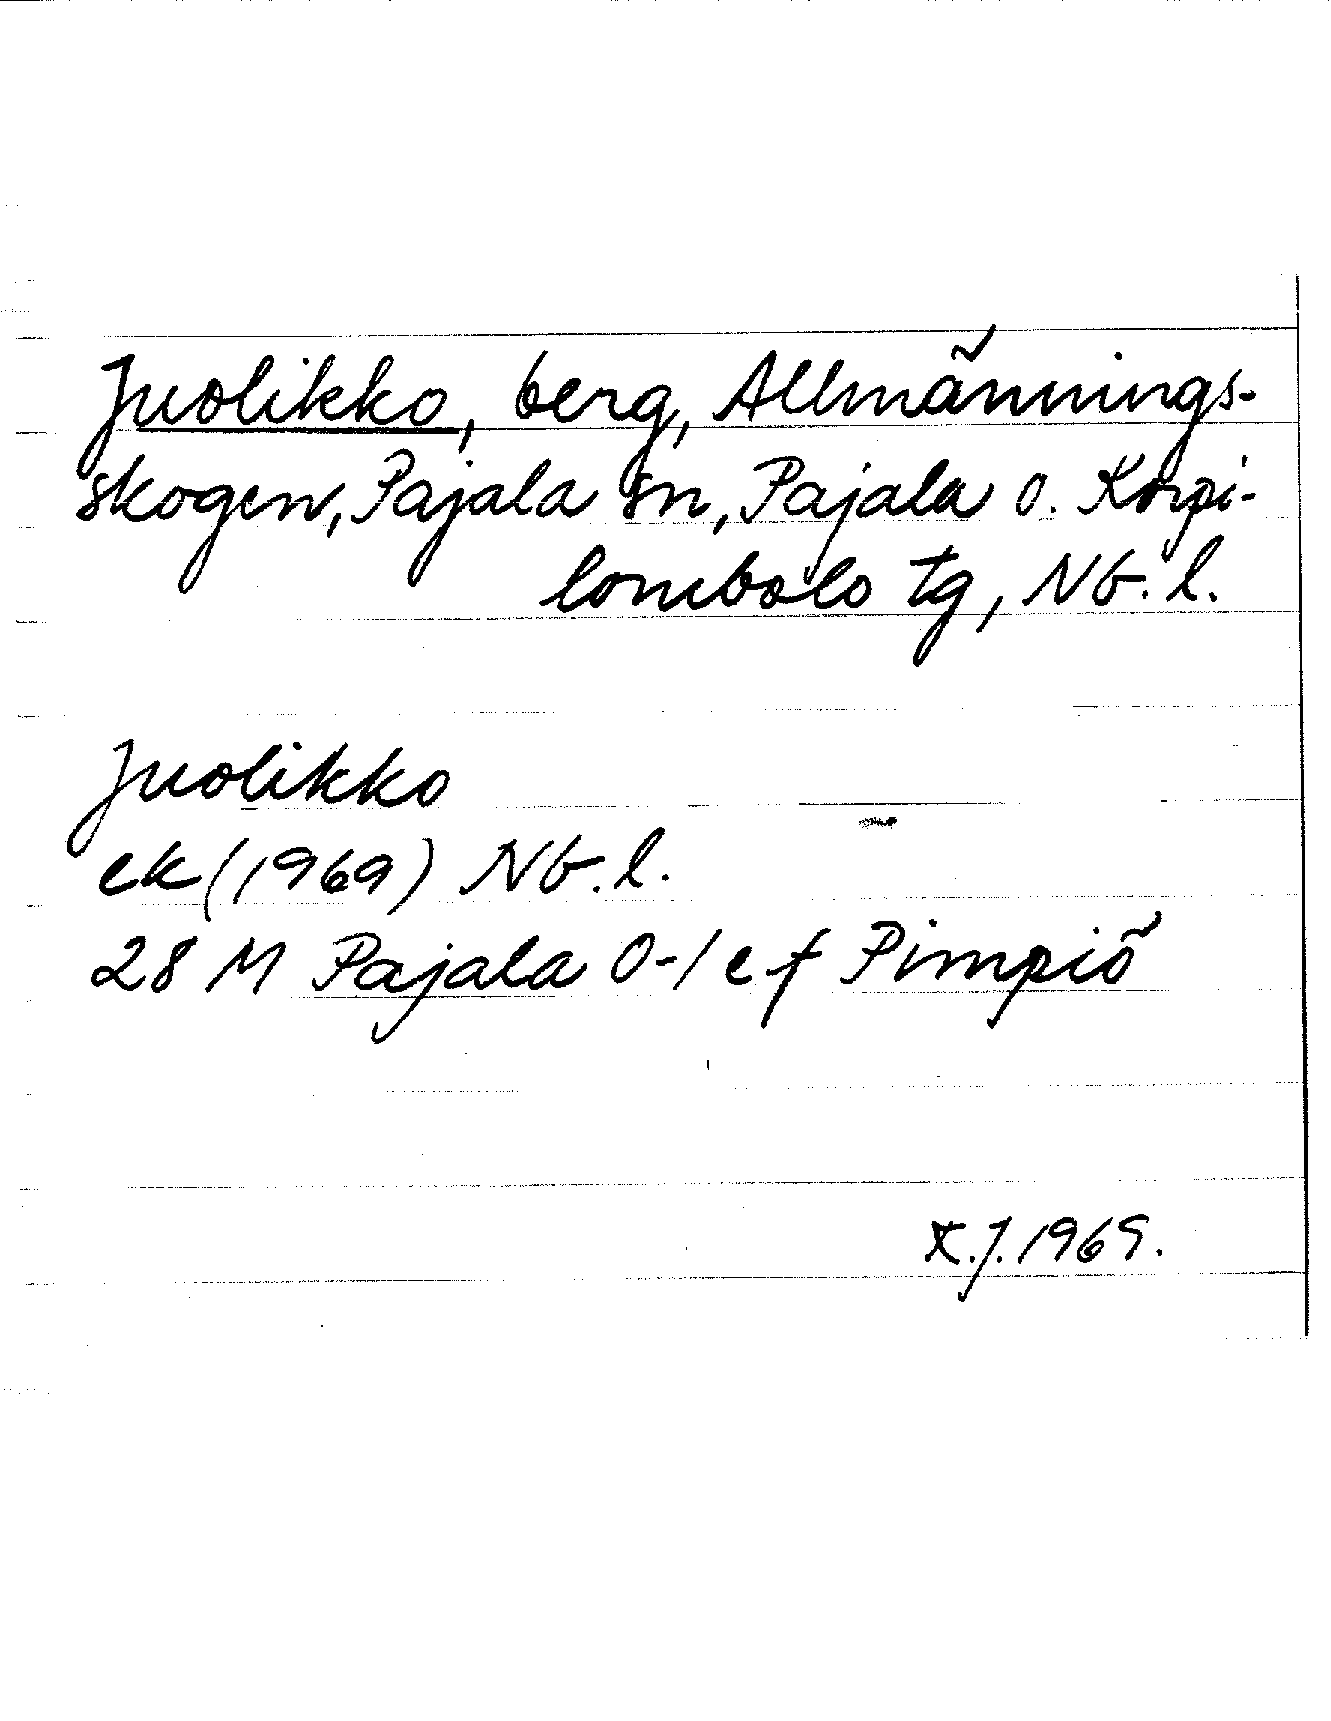 Juolikko, berg, Allmännings-
skogen, Pajala sn, Pajala o. Korpi-
lombolo tg, Nb. l.
Juolikko
ek (1969) Nb. l.
28 M Pajala 0-1 e f Pimpiö
K.J. 1969.